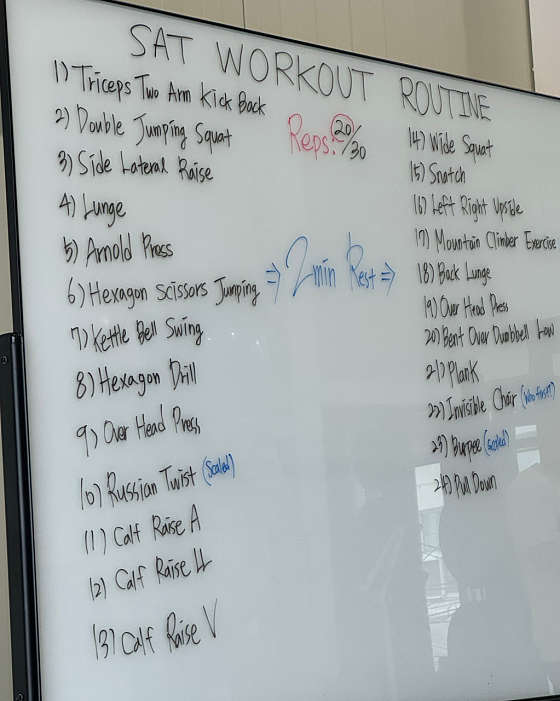 SAT WORKOUT ROUTINE
1) Triceps Two Arm Kick Back
2) Double Jumping Squat
3) Side Lateral Raise
4) Lunge
5) Arnold Press
6) Hexagon Scissors Jumping
7) Kettle Bell Swing
8) Hexagon Drill
9) Over Head Press
10) Russian Twist (Scaled)
11) Calf Raise A
12) Calf Raise 11
13) Calf Raise V
Reps: 20/30
⇒ 2 min Rest ⇒
14) Wide Squat
15) Snatch
16) Left Right Upside
17) Mountain Climber Exercise
18) Back Lunge
19) Over Head Press
20) Bent Over Dumbbell
21) Plank
22) Invisible Chair
23) Burpee (Scaled)
24) Pull Down